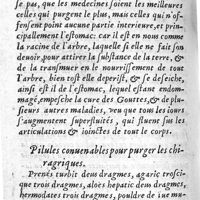 ſe pas, que les medecines ſoient les meilleures
celles qui purgent le plus, mais celles qui n'of-
fenſent point aucune partie interieure, & prin-
cipallement l'eſtomac: car il eſt en nous comme
la racine de l'arbre, laquelle ſi elle ne fait ſon
deuoir pour attirer la ſubſtance de la terre, &
de la tranſmuer en le nourriſſement de tout
l'arbre, bien toſt elle deperiſt, & ſe deſeiche,
ainſi eſt il de l'eſtomac, lequel eſtant endom-
magé, empeſche la cure des Gouttes, & de plu-
ſieurs autres maladies, veu que tous les iours
s'augmentent ſuperfluités, qui fluent ſus les
articulations & ioinctes de tout le corps.
Pilules conuenables pour purger les chi-
ragriques.
Prenés turbit deux dragmes, agaric troſciſ-
que trois dragmes, aloës hepatic deux dragmes,
hermodates trois dragmes, pouldre de iue mu-